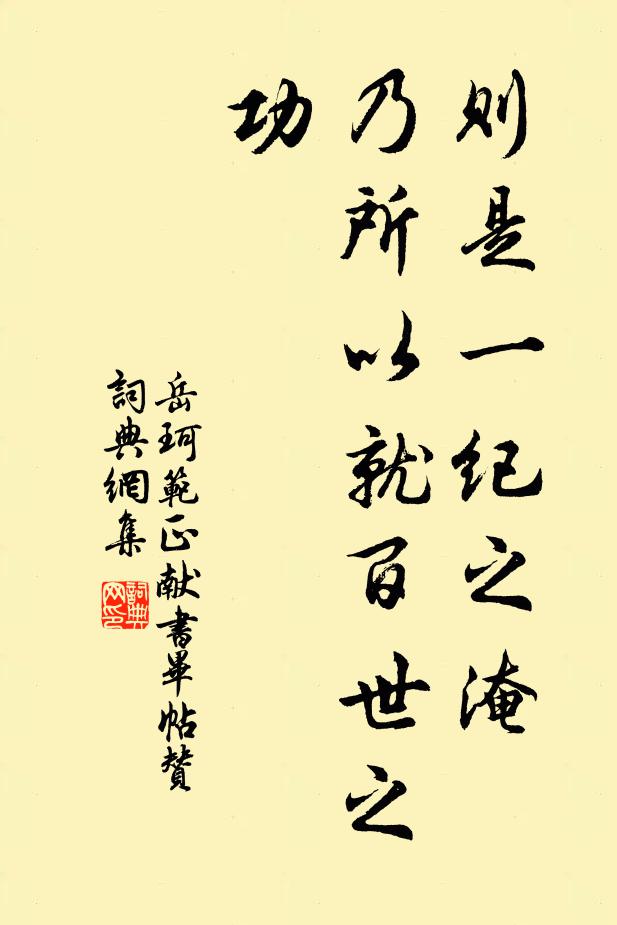 則是一纪之淹
乃所以就百世之
功
岳珂範正献書畢帖贊
詞典網集
詞典網印